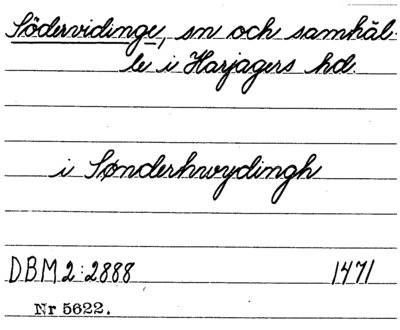 Södervidinge, sn och samhäl-
le i Harjagers hd.
i Sønderhwydingh
DBM 2:2888 1471
Nr 5622.